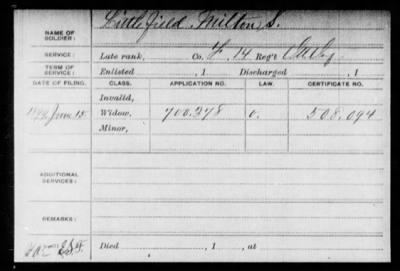 NAME OF SOLDIER: Littlefield, Milton S.
SERVICE: Late rank, Co. F, 14 Reg't
TERM OF SERVICE: Enlisted , 1 Discharged , 1
DATE OF FILING. CLASS. APPLICATION NO. LAW. CERTIFICATE NO.
Invalid,
1899 June 15. Widow, 700.378 O. 508.094
Minor,
ADDITIONAL SERVICES:
REMARKS:
Died , 1 , at